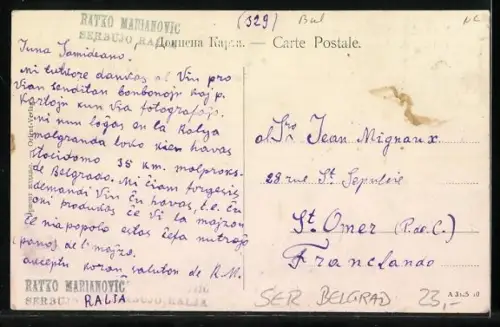 RATKO MARIANOVIC
SERBUJO, RALJA
(329)
Bul
Дописна Карта. — Carte Postale.
Juna Samideano.
Mi tutkore dankas al Vin pro
Vian senditan bonbonojn kaj p.
kartojn kun Via fotografaĵo.
Mi nun loĝas en la Ralja
malgranda loko kien havas
stacidomo 35 km. malproks.
de Belgrado. Mi ĉiam forgesis
demandi Vin ĉu havas, t.e. ĉu
oni produktas ĉe Vi la maizon
Ĉe nia popolo estas ĉefa nutraĵo
panoj de l' maizo.
Akceptu koran saluton de R.M.
RATKO MARIANOVIC
SERBUJO, RALJA
RALJA
al Sro Jean Mignaux
28 rue St Sepulcre
St. Omer (P. de C.)
Franclando
SER BELGRAD
23,-